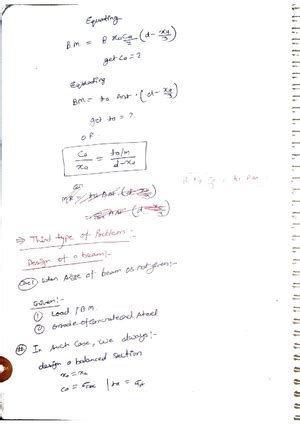 Equating
BM = B x₀ C₀/2 (d - x₀/3)
get C₀ = ?
Equating
BM = t₀ Ast · (d - x₀/3)
get t₀ = ?
OR
C₀/x₀ = t₀/m / d-x₀
(d - x₀/3)
(d - x₀/3)
⇒ Third type of Problem:-
Design of a beam:-
Case 1 When size of beam is not given:-
Given:-
① Load / BM
② Grade of concrete and steel
In such case, we always:-
design a balanced section
x₀ = xc
C₀ = σcbc | t₀ = σst